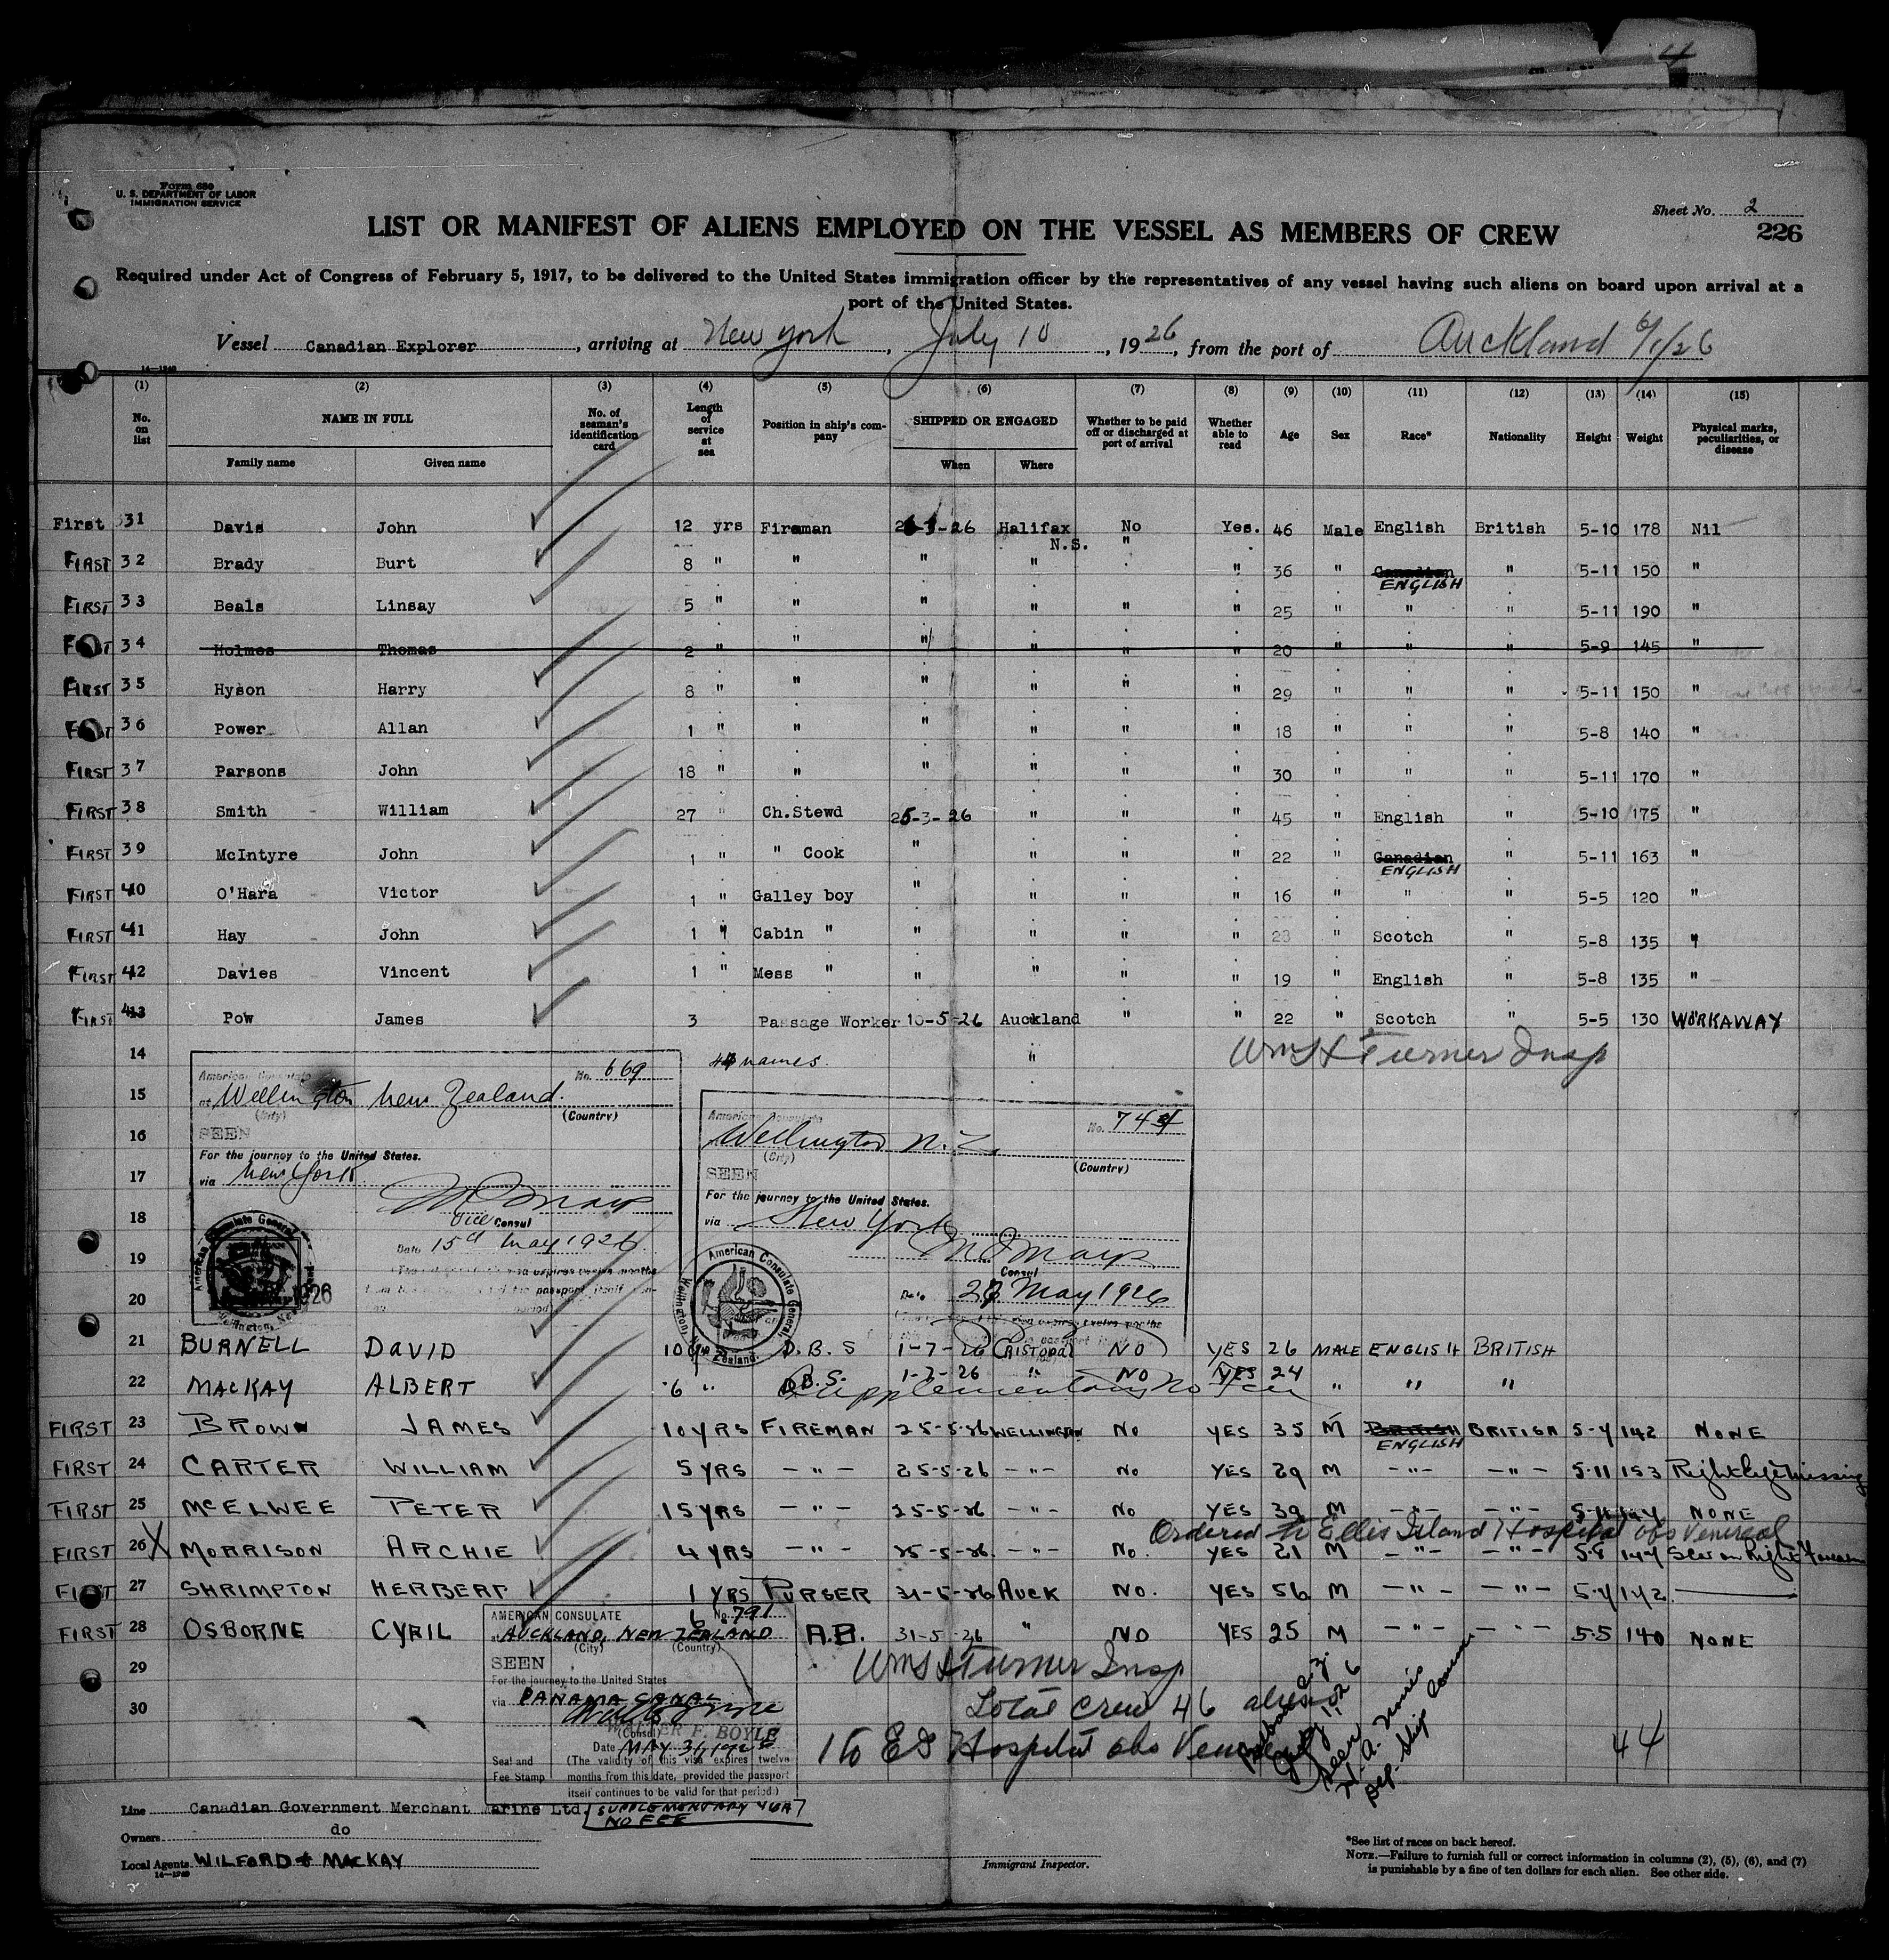 Form 680
U. S. DEPARTMENT OF LABOR
IMMIGRATION SERVICE
Sheet No. 2
226
LIST OR MANIFEST OF ALIENS EMPLOYED ON THE VESSEL AS MEMBERS OF CREW
Required under Act of Congress of February 5, 1917, to be delivered to the United States immigration officer by the representatives of any vessel having such aliens on board upon arrival at a
port of the United States.
Vessel Canadian Explorer, arriving at New York, July 10, 1926, from the port of Auckland 6/1/26
(1) (2) (3) (4) (5) (6) (7) (8) (9) (10) (11) (12) (13) (14) (15)
No. on list NAME IN FULL No. of seaman's identification card Length of service at sea Position in ship's company SHIPPED OR ENGAGED Whether to be paid off or discharged at port of arrival Whether able to read Age Sex Race* Nationality Height Weight Physical marks, peculiarities, or disease
Family name Given name When Where
First 31 Davis John 12 yrs Fireman -26 Halifax No Yes. 46 Male English British 5-10 178 Nil
N.S. "
FIRST 32 Brady Burt 8 " " " " " 36 " Canadian " 5-11 150 "
ENGLISH
FIRST 33 Beals Linsay 5 " " " " " " 25 " " " 5-11 190 "
34 Holmes Thomas 2 " " " " " " 20 " " " 5-9 145 "
FIRST 35 Hyson Harry 8 " " " " " " 29 " " " 5-11 150 "
FIRST 36 Power Allan 1 " " " " " " 18 " " " 5-8 140 "
FIRST 37 Parsons John 18 " " " " " " 30 " " " 5-11 170 "
FIRST 38 Smith William 27 " Ch.Stewd 25-3-26 " " " 45 " English " 5-10 175 "
FIRST 39 McIntyre John 1 " " Cook " " " " 22 " Canadian " 5-11 163 "
ENGLISH
FIRST 40 O'Hara Victor 1 " Galley boy " " " " 16 " " " 5-5 120 "
FIRST 41 Hay John 1 " Cabin " " " " " " Scotch " 5-8 135 "
FIRST 42 Davies Vincent 1 " Mess " " " " " 19 " English " 5-8 135 "
FIRST 43 Pow James 3 Passage Worker 10-5-26 Auckland " " 22 " Scotch " 5-5 130 WORKAWAY
14 names. " Wm S Turner Insp
American Consulate No. 669
15 at Wellington New Zealand.
(City) (Country)
American Consulate No. 744
16 SEEN Wellington N.Z.
(City) (Country)
For the journey to the United States.
17 via New York
SEEN
For the journey to the United States.
18 Vice Consul via New York
Date 15th May 1926
19 Consul
20 1926 Date May 1926
American Consulate General, Wellington, New Zealand.
21 BURNELL DAVID 10 D.B.S 1-7-26 CRISTOBAL NO YES 26 MALE ENGLISH BRITISH
22 MACKAY ALBERT 6 " D.B.S. 1-7-26 " NO YES 24 " " "
Supplementary No Fee
FIRST 23 BROWN JAMES 10 YRS FIREMAN 25-5-26 WELLINGTON NO YES 35 M BRITISH BRITISH 5-4 142 NONE
ENGLISH
FIRST 24 CARTER WILLIAM 5 YRS -"- 25-5-26 -"- No YES 29 M -"- -"- 5-11 153 Right Eye Missing
FIRST 25 McELWEE PETER 15 YRS -"- 25-5-26 -"- No YES 39 M -"- -"- NONE
Ordered to Ellis Island Hospital obs Venereal
FIRST 26 X MORRISON ARCHIE 4 YRS -"- 25-5-26 -"- No. YES 21 M -"- -"- 5-8 144 Scar on Right Forearm
FIRST 27 SHRIMPTON HERBERT 1 YRS PURSER 31-5-26 AUCK NO. YES 56 M -"- -"- 5-4 142
FIRST 28 OSBORNE CYRIL 6 A.B. 31-5-26 " NO YES 25 M -"- -"- 5.5 140 NONE
AMERICAN CONSULATE No. 791
AUCKLAND, NEW ZEALAND
(City) (Country)
29 SEEN
Wm S Turner Insp
For the journey to the United States
30 via PANAMA CANAL
Total crew 46 aliens
WALTER F. BOYLE
(Consul)
Date MAY 31 1926
Seal and Fee Stamp (The validity of this visa expires twelve
months from this date, provided the passport
itself continues to be valid for that period.)
1 to EI Hospital obs Venereal
44
Line Canadian Government Merchant Marine Ltd.
SUPPLEMENTARY
NO FEE
Owners do
Local Agents WILFORD & MACKAY
14—1240
Immigrant Inspector.
*See list of races on back hereof.
NOTE.—Failure to furnish full or correct information in columns (2), (5), (6), and (7)
is punishable by a fine of ten dollars for each alien. See other side.